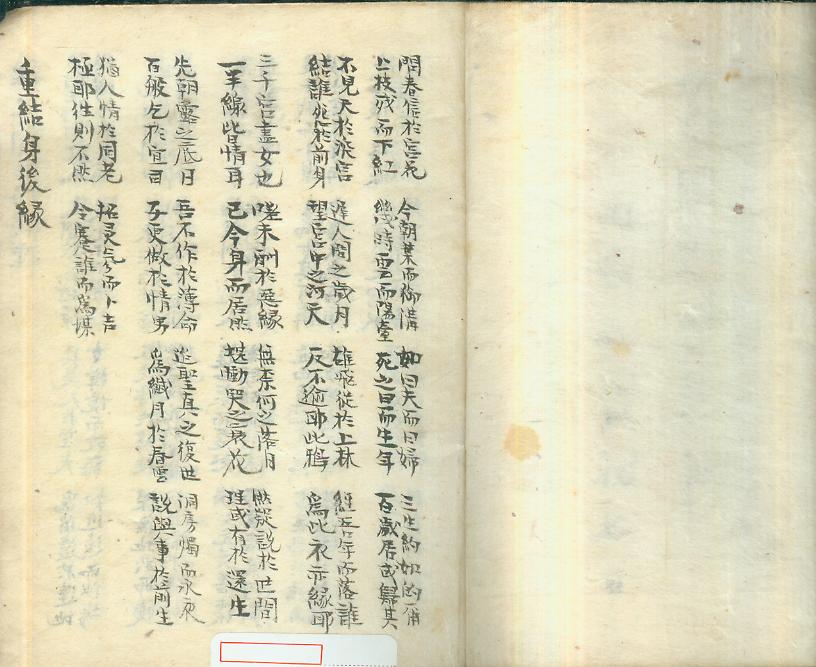 問春信於宮花
上枝殘而下紅
今朝葉而御溝
幾時雲而陽臺
如曰夫而曰婦
死之日而生年
三生約如
百歲居或歸其
不見天於深宮
結誰死於前身
遲人間之歲月
望宮中之河天
雄飛從於上林
反不逾耶此鴉
經吾年而落誰
爲此衣亦緣耶
三千宮盡女也
一半線皆情耳
嗟未刪於惡緣
已今身而居然
無柰何之落月
堪慟哭之哀花
說於世間
理或有於還生
先朝露之底日
百般乞於宜
吾不作於薄命
子更做於情男
進聖真之復世
爲纖月於春雲
洞房燭而永夜
說與事於前生
猶人情於同老
極耶往則不然
招靈氛而卜吉
令蹇誰而爲媒
重結身後緣